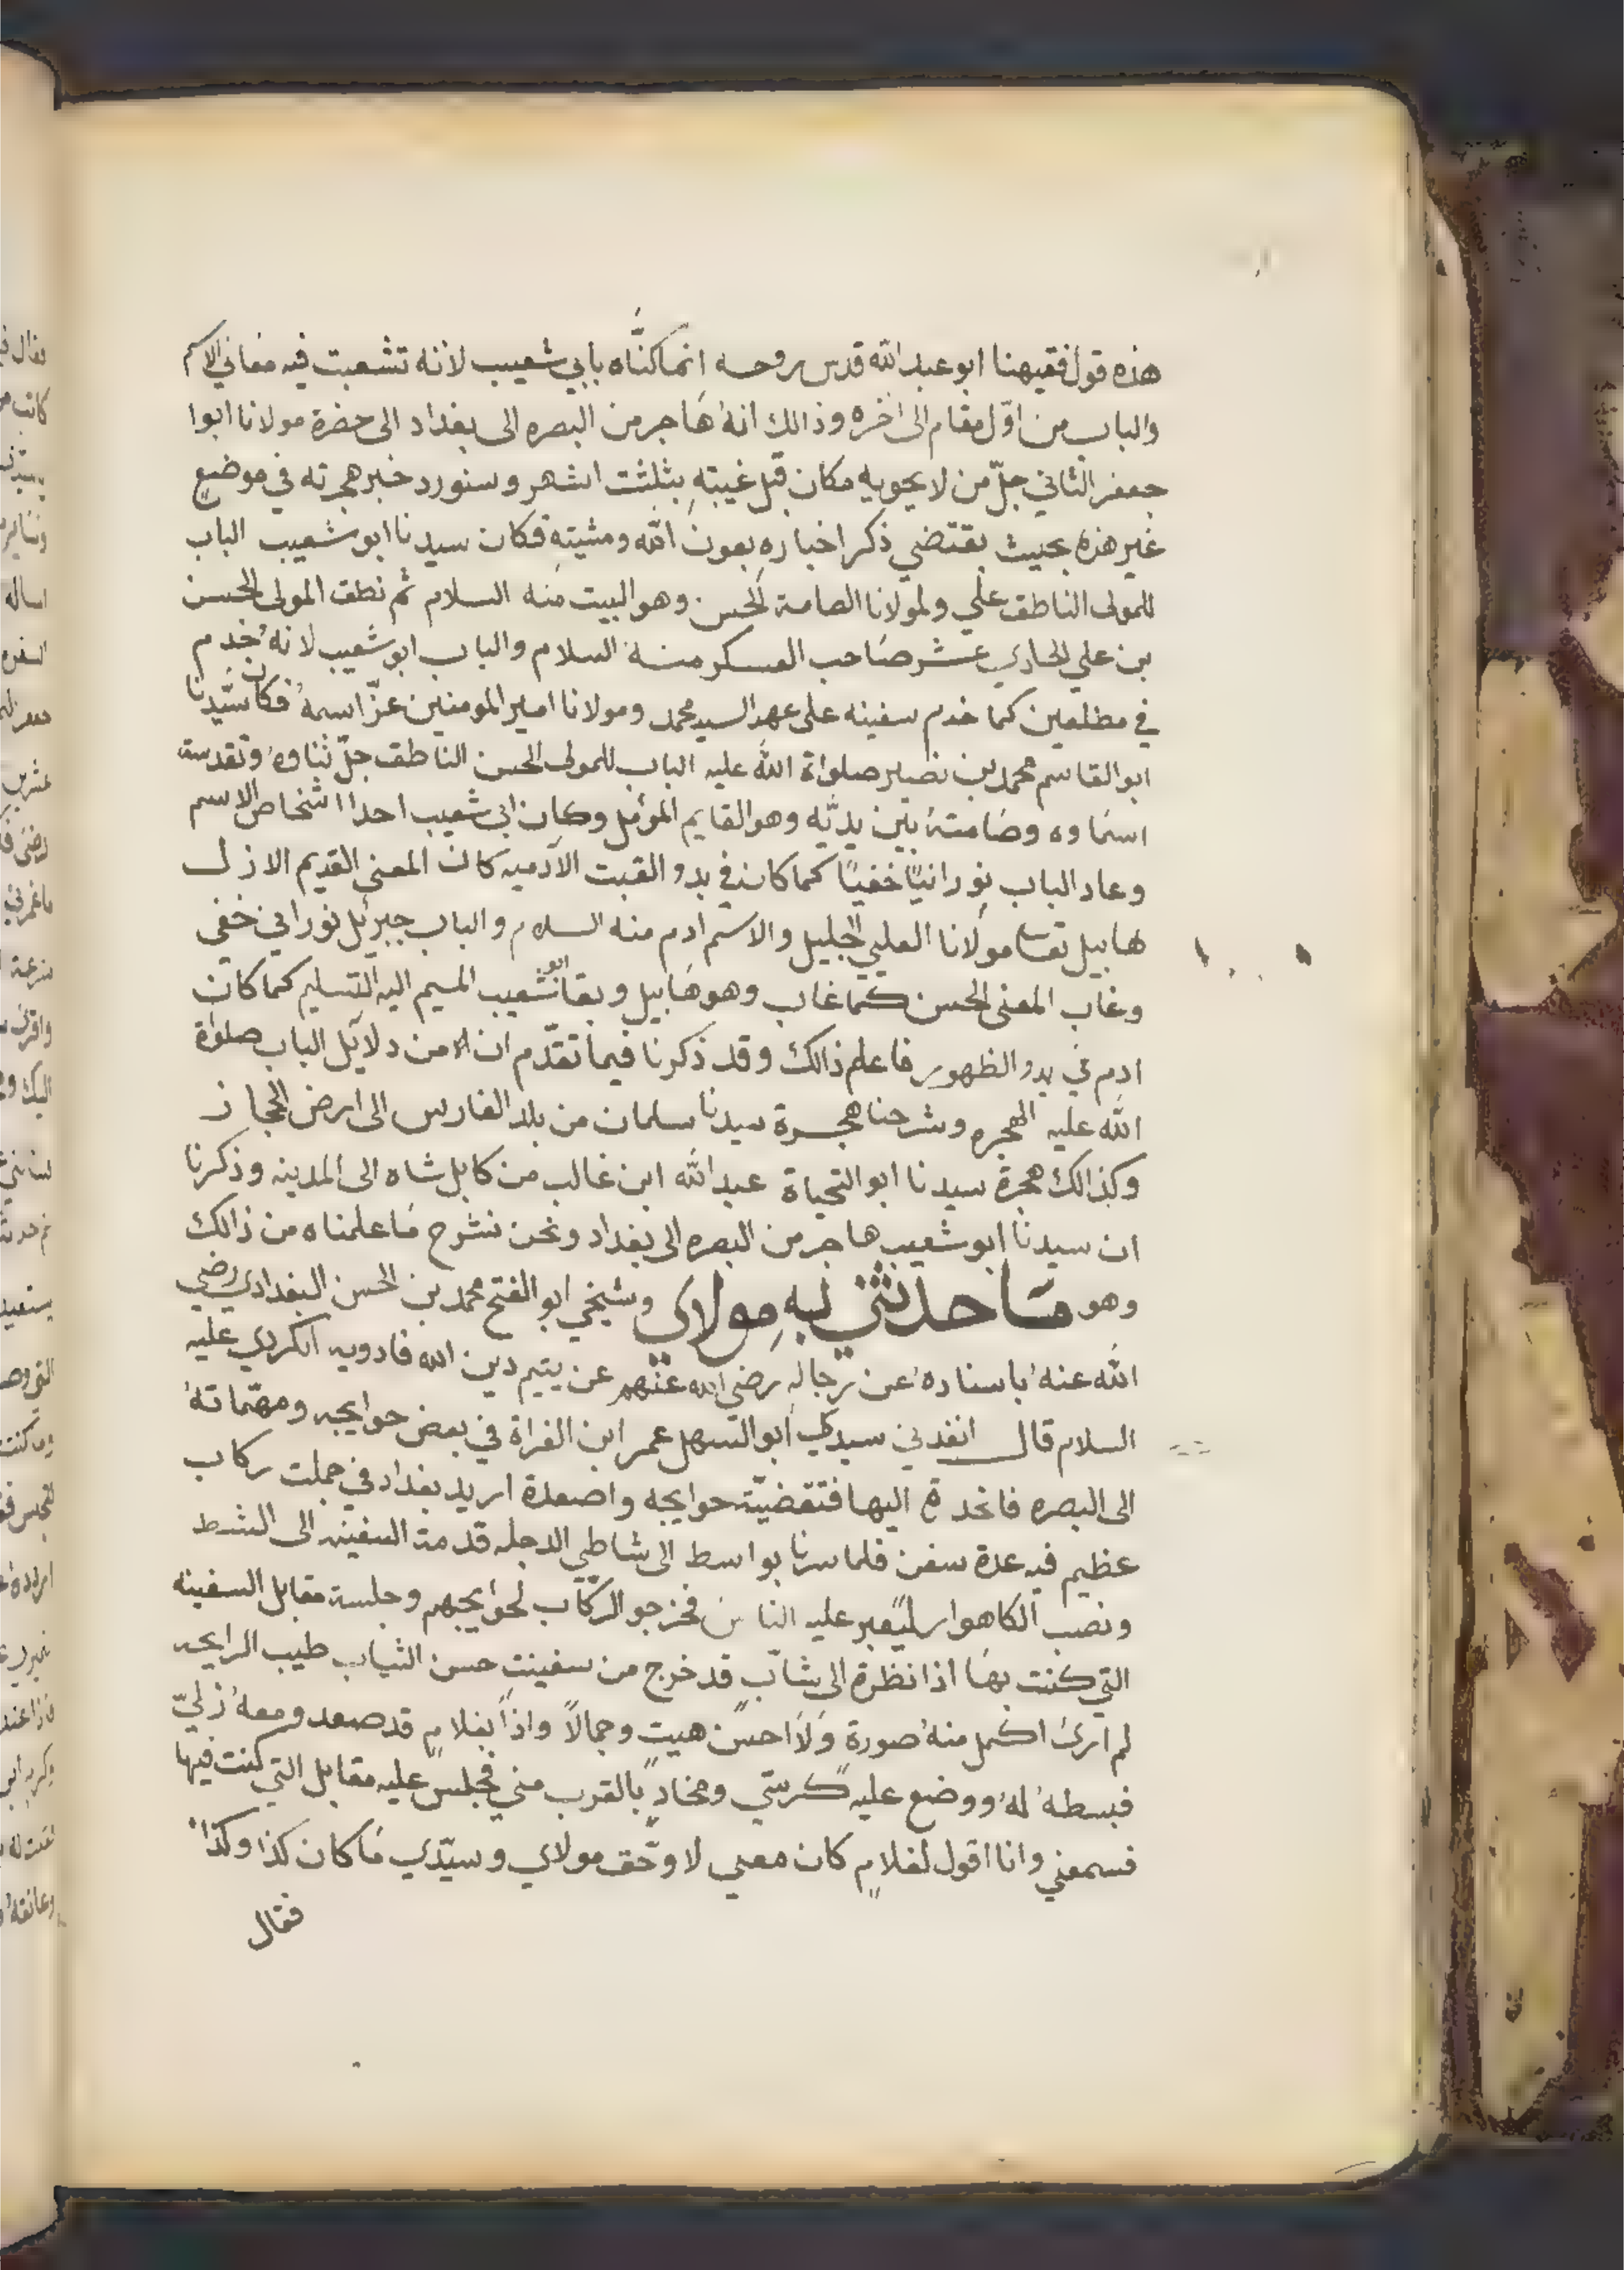 هذه قول فقيهنا ابو عبد الله قدس روحه انما كنّاه بابي شعيب لانه تشعبت فيه معاني الاسم
والباب من اوّل مقام الى اخره وذالك انه هاجر من البصره الى بغداد الى حضرة مولانا ابوا
جعفر الثاني جلّ من لا يحويه مكان قبل غيبته بثلثت اشهر وسنورد خبر هجرته في موضع
غير هذه بحيث يقتضي ذكر اخباره بعون الله ومشيته فكان سيدنا ابو شعيب الباب
للمولى الناطق علي ولمولانا الصامة الحسن وهو البيت منه السلام ثم نطق المولى الحسن
بن علي الحادي عشر صاحب العسكر منه السلام والباب ابو شعيب لانه خدم
في مطلعين كما خدم سفينه على عهد السيد محمد ومولانا امير المومنين عزّ اسمه فكان سيّدنا
ابو القاسم محمد بن نصير صلواة الله عليه الباب للمولى الحسن الناطق جلّ ثناوه وتقدسة
اسماوه وصامته بين يديّه وهو القايم المؤمل وكان ابي شعيب احد اشخاص الاسم
وعاد الباب نورانيًا خفيًا كما كان في بدو القبت الآدميه كان المعنى القديم الازل
هابيل تعا مولانا العلي الجليل والاسم ادم منه السلام والباب جبرئل نوراني خفي
وغاب المعنى الحسن كما غاب وهو هابيل وبقا ابو شعيب المسيم اليه التسليم كما كان
ادم في بدو الظهور فاعلم ذالك وقد ذكرنا فيما تقدّم ان من دلايل الباب صلواة
الله عليه الهجره وشرحنا هجرة سيدنا سلمان من بلد الفارس الى ارض الحجاز
وكذالك هجرة سيدنا ابو التحياة عبد الله ابن غالب من كابل شاه الى المدينه وذكرنا
ان سيدنا ابو شعيب هاجر من البصره الى بغداد ونحن نشرح ما علمناه من ذالك
وهو ما حدثني به مولاي وشيخي ابو الفتح محمد بن الحسن البغدادي رضي
الله عنه باسناده عن رجاله رضي الله عنهم عن يتيم دين الله فادويه الكردي عليه
السلام قال انفدني سيدي ابو السهل عمر ابن الفراة في بعض حوايجه ومهمّاته
الى البصره فانحدرة اليها فتقضيّت حوايجه واصعدة اريد بغداد في جملت ركاب
عظيم فيه عدة سفن فلما سرنا بواسط الى شاطي الدجله قدمة السفينه الى الشط
ونصب الكاهوار ليعبر عليه الناس فخرجو الركّاب لحوايجهم وجلسة مقابل السفينه
التي كنت بها اذا نظرة الى شابّ قد خرج من سفينت حسن الثياب طيب الرايحه
لم ارئ اكمل منه صورة ولا احسن هيت وجمالاً واذا بغلام قد صعد ومعه زليّ
فبسطه له ووضع عليه كرسيّ ومخاد بالقرب مني فجلس عليه مقابل التي كنت فيها
فسمعني وانا اقول لغلام كان معي لا وحق مولاي وسيّدي ما كان كذا وكذا
فقال